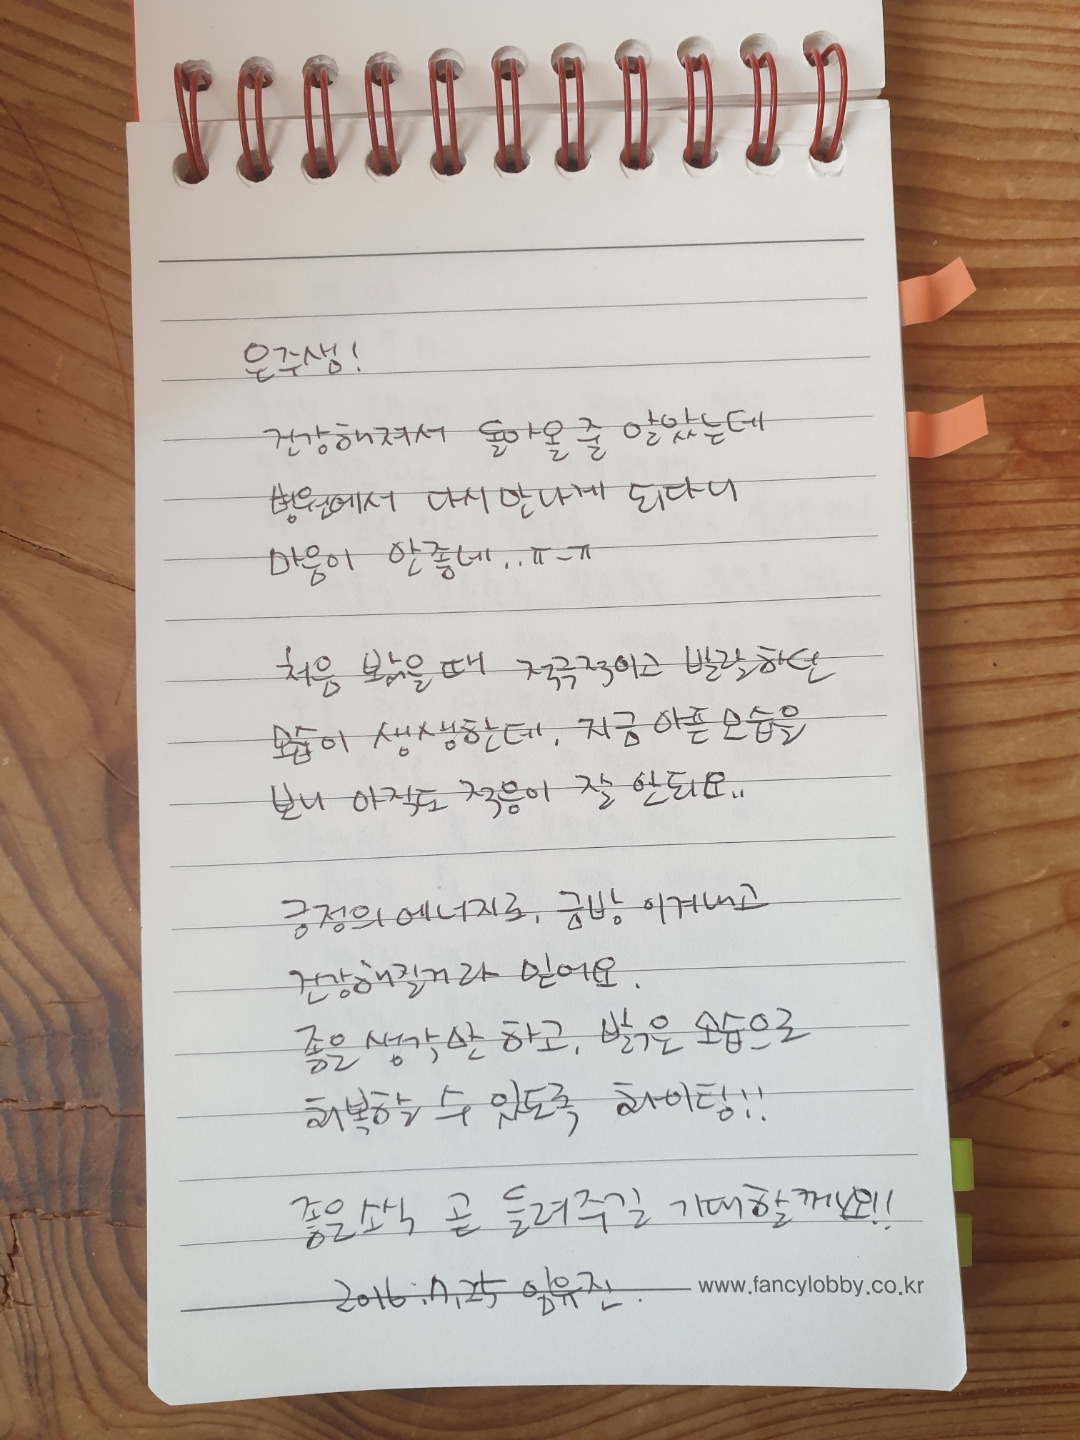 은주샘!
건강해져서 돌아올 줄 알았는데
병원에서 다시만나게 되다니
마음이 안좋네..ㅠ-ㅠ
처음 봤을때 적극적이고 발랄하던
모습이 생생한데, 지금 아픈모습을
보니 아직도 적응이 잘 안되요..
긍정의 에너지로, 금방 이겨내고
건강해질거라 믿어요.
좋은생각만 하고, 밝은 모습으로
회복할 수 있도록 화이팅!!
좋은소식 곧 들려주길 기대할께요!!
2016.7.25 임유진.
www.fancylobby.co.kr